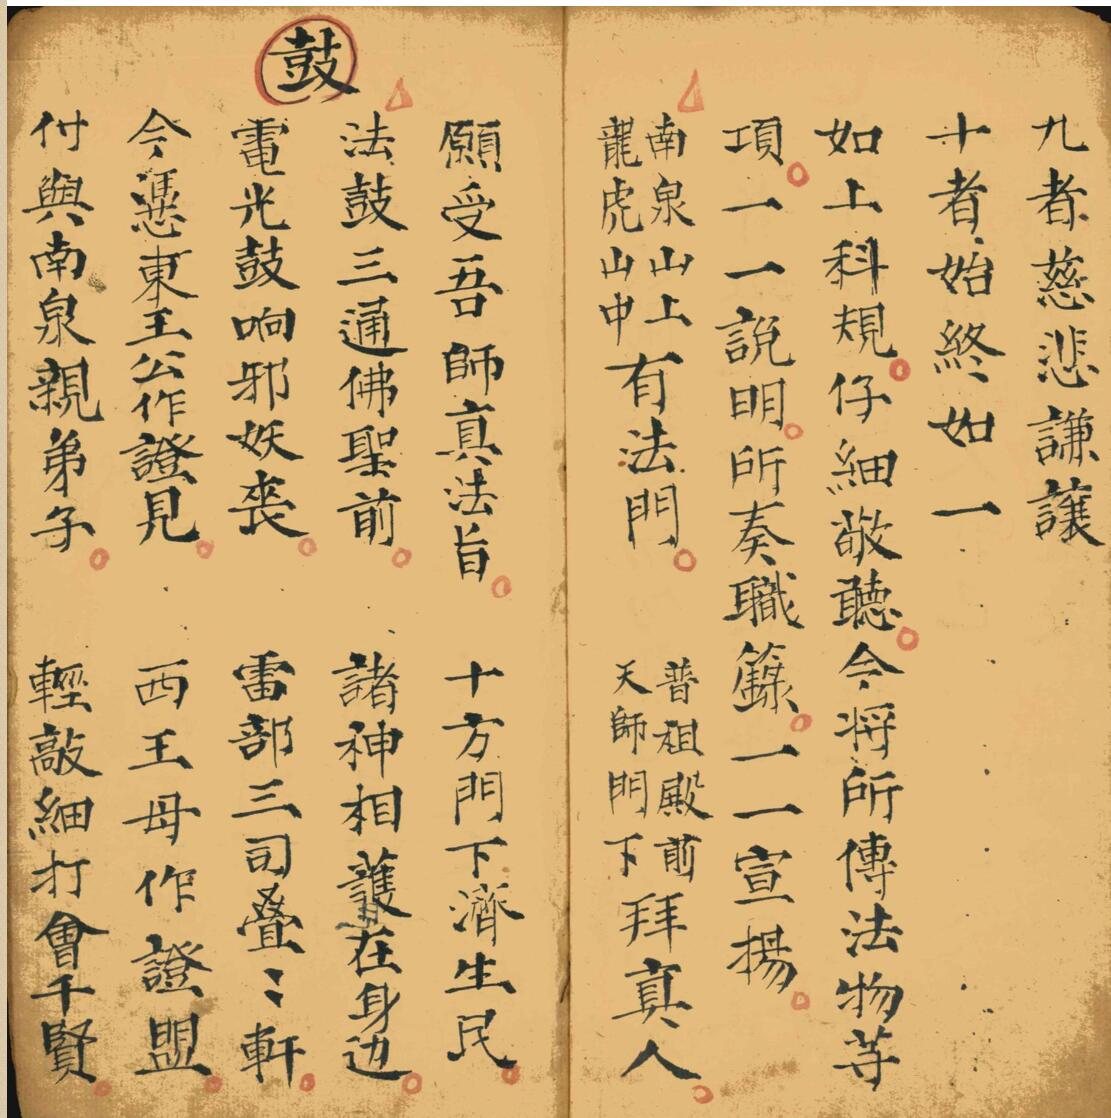 九者慈悲謙讓
十者始終如一
如上科規仔細敬聽今将所傳法物等
項一一說明所奏職籙一一宣揚
南泉山上
龍虎山中
有法門
普祖殿前
天師門下
拜真人
願受吾師真法旨 十方門下濟生民
鼓
法鼓三通佛聖前 諸神相護在身边
電光鼓响邪妖喪 雷部三司叠〻軒
今憑東王公作證見 西王母作證盟
付與南泉親弟子 輕敲細打會千賢